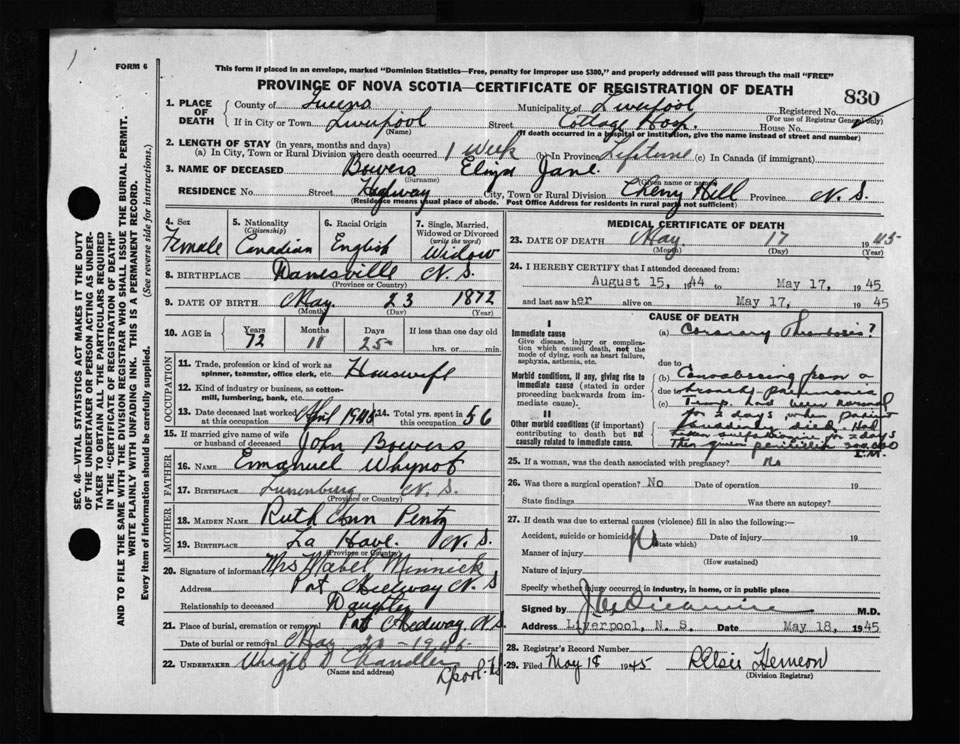 FORM 6
This form if placed in an envelope, marked "Dominion Statistics—Free, penalty for improper use $300," and properly addressed will pass through the mail "FREE"
PROVINCE OF NOVA SCOTIA—CERTIFICATE OF REGISTRATION OF DEATH
830
1. PLACE OF DEATH
County of Queens Municipality of Liverpool Registered No.
(For use of Registrar General only)
If in City or Town Liverpool Street Cottage Hosp. House No.
(Name) (If death occurred in a hospital or institution, give the name instead of street and number)
2. LENGTH OF STAY (in years, months and days)
(a) In City, Town or Rural Division where death occurred 1 Week (b) In Province Lifetime (c) In Canada (if immigrant)
3. NAME OF DECEASED Bowers Eliza Jane
(Surname) (Given name or names)
RESIDENCE No. Street Highway City, Town or Rural Division Cherry Hill Province N. S.
(Residence means usual place of abode. Post Office Address for residents in rural parts not sufficient)
4. Sex Female
5. Nationality (Citizenship) Canadian
6. Racial Origin English
7. Single, Married, Widowed or Divorced (write the word) Widow
8. BIRTHPLACE Danesville N. S.
(Province or Country)
9. DATE OF BIRTH May 23 1872
(Month) (Day) (Year)
10. AGE in Years Months Days If less than one day old
72 11 25 hrs. or min.
OCCUPATION
11. Trade, profession or kind of work as spinner, teamster, office clerk, etc. Housewife
12. Kind of industry or business, as cotton-mill, lumbering, bank, etc.
13. Date deceased last worked at this occupation April 1945 14. Total yrs. spent in 56
15. If married give name of wife or husband of deceased John Bowers
FATHER
16. NAME Emanuel Whynot
17. BIRTHPLACE Lunenburg, N. S.
(Province or Country)
MOTHER
18. MAIDEN NAME Ruth Ann Pentz
19. BIRTHPLACE La Have. N. S.
(Province or Country)
20. Signature of informant Mrs Mabel Minnick
Address Port Medway N. S
Relationship to deceased Daughter
21. Place of burial, cremation or removal Port Medway, N.S.
Date of burial or removal May 20 - 1945
22. UNDERTAKER Virgil D Chandler
(Name and address) Lpool. N.S
MEDICAL CERTIFICATE OF DEATH
23. DATE OF DEATH May 17 1945
(Month) (Day) (Year)
24. I HEREBY CERTIFY that I attended deceased from:
August 15, 1944 to May 17, 1945
and last saw her alive on May 17, 1945
CAUSE OF DEATH
I
Immediate cause
Give disease, injury or complication which caused death, not the mode of dying, such as heart failure, asphyxia, asthenia, etc.
(a) Coronary Thrombosis?
due to
Morbid conditions, if any, giving rise to immediate cause (stated in order proceeding backwards from immediate cause).
(b) Convalescing from a
due to broncho pneumonia
(c) Temp. had been normal
for 2 days when patient
suddenly died. Had
II
Other morbid conditions (if important) contributing to death but not causally related to immediate cause.
been for 2 days
then given penicillin 200,000
I.M.
25. If a woman, was the death associated with pregnancy? No
26. Was there a surgical operation? No Date of operation 19
State findings Was there an autopsy?
27. If death was due to external causes (violence) fill in also the following:—
Accident, suicide or homicide (State which) Date of injury 19
Manner of injury
(How sustained)
Nature of injury
Specify whether injury occurred in industry, in home, or in public place
Signed by M.D.
Address Liverpool, N. S. Date May 18, 1945
28. Registrar's Record Number
29. Filed May 18 1945 Elsie Hemeon
(Division Registrar)
SEC. 46—VITAL STATISTICS ACT MAKES IT THE DUTY
OF THE UNDERTAKER OR PERSON ACTING AS UNDERTAKER TO OBTAIN ALL THE PARTICULARS REQUIRED
IN THE "CERTIFICATE OF REGISTRATION OF DEATH"
AND TO FILE THE SAME WITH THE DIVISION REGISTRAR WHO SHALL ISSUE THE BURIAL PERMIT.
WRITE PLAINLY WITH UNFADING INK. THIS IS A PERMANENT RECORD.
Every item of information should be carefully supplied. (See reverse side for instructions.)